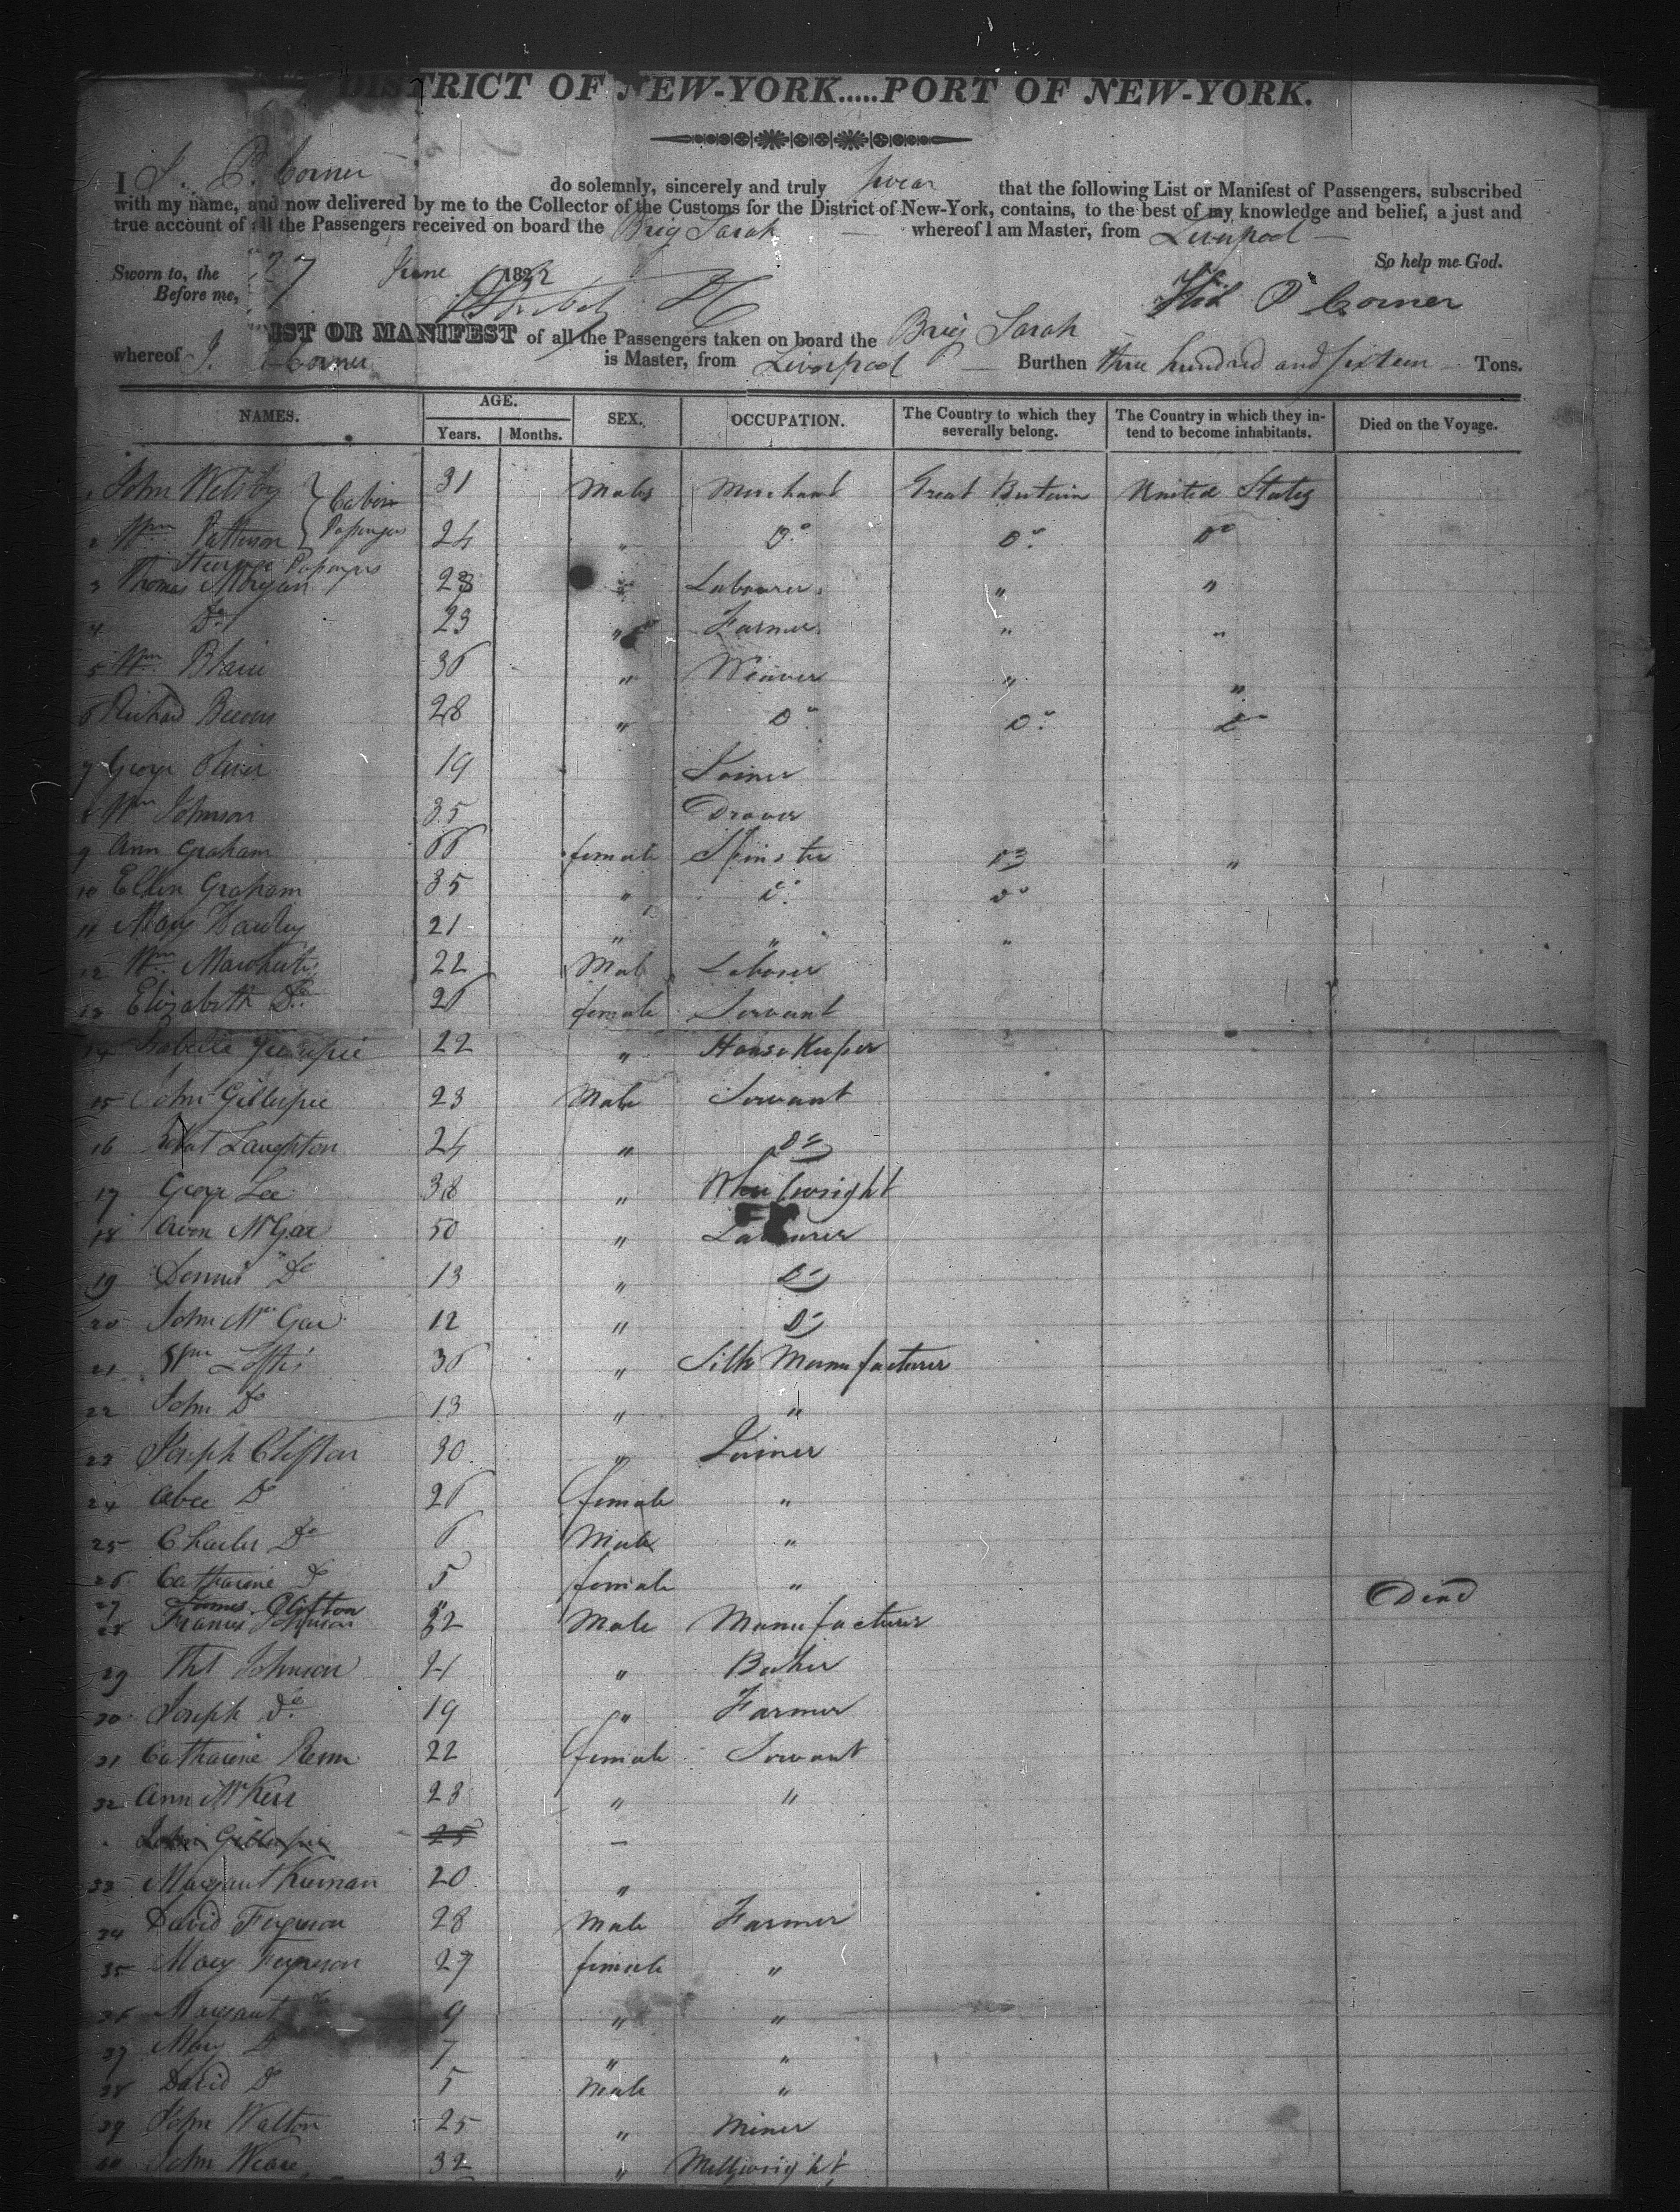 DISTRICT OF NEW-YORK.....PORT OF NEW-YORK.
I J. P. Corner do solemnly, sincerely and truly swear that the following List or Manifest of Passengers, subscribed
with my name, and now delivered by me to the Collector of the Customs for the District of New-York, contains, to the best of my knowledge and belief, a just and
true account of all the Passengers received on board the Brig Sarah whereof I am Master, from Liverpool
So help me God.
Sworn to, the 27 June 1832
Before me, P Corner
LIST OR MANIFEST of all the Passengers taken on board the Brig Sarah
whereof J. P Corner is Master, from Liverpool Burthen three hundred and sixteen Tons.
NAMES. AGE. Years. Months. SEX. OCCUPATION. The Country to which they severally belong. The Country in which they intend to become inhabitants. Died on the Voyage.
1 John Welsby 31 Male Merchant Great Britain United States
Cabin Passengers
2 Wm Patterson 24 " Do Do Do
Steerage Passengers
3 Thomas Morgan 28 " Labourer " "
4 Do 23 " Farmer " "
5 Wm Blair 36 " Weaver " "
6 Richard 28 " Do Do Do
7 George Oliver 19 Joiner
8 Wm Johnson 35 Drover
9 Ann Graham 66 female Spinster "
10 Ellen Graham 35 " Do Do
11 Mary 21 " " "
12 Wm 22 Male Laborer
13 Elizabeth Do 26 female Servant
14 Isabella Gillespie 22 " House Keeper
15 John Gillespie 23 Male Servant
16 Robt Laughton 24 " Do
17 George Lee 38 " Wheelwright
18 McGar 50 " Labourer
19 Dennis Do 13 " Do
20 John McGar 12 " Do
21 Wm Loftis 36 " Silk Manufacturer
22 John Do 13 " "
23 Joseph Clifton 30 " Joiner
24 Do 26 female "
25 Charles Do 6 Male "
26 Catharine Do 5 female "
27 James Clifton Dead
28 Francis Johnson 32 Male Manufacturer
29 Johnson 21 " Baker
30 Joseph Do 19 " Farmer
31 Catharine 22 female Servant
32 Ann McKerr 23 " "
John Gillespie 25
33 Margaret Kiernan 20 "
34 David Ferguson 28 Male Farmer
35 Mary Ferguson 27 female "
36 Margaret Do 9 " "
37 Mary Do 7 " "
38 David Do 5 Male "
39 John Walton 25 " Miner
40 John Weare 32 " Millwright